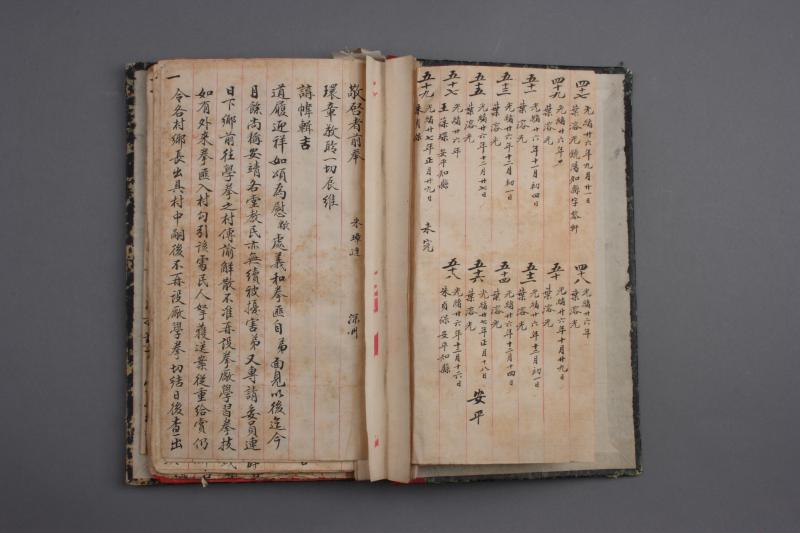 四十七 光緒廿六年九月廿一日
葉溶光 饒陽知縣字黎軒
四十八 光緒廿六年
葉溶光
四十九 光緒廿六年
葉溶光
五十 光緒廿六年十月廿九日
葉溶光
五十一 光緒廿六年十一月初四日
葉溶光
五十二 光緒廿六年十二月初一日
葉溶光
五十三 光緒廿六年十二月初一日
葉溶光
五十四 光緒廿六年十二月十四日
葉溶光
五十五 光緒廿六年十二月廿七日
葉溶光
五十六 光緒廿七年正月十八日
葉溶光
安平
五十七 光緒廿六年
王葆琛 安平知縣
五十八 光緒廿六年十二月十六日
朱貞保 安平知縣
五十九 光緒廿七年正月廿九日
朱貞保
未完
朱璋達 深州
敬啓者前奉
環章敬聆一切辰維
講幃輯吉
道履迎祥如頌為慰敝處義和拳匪自弟面見以後迄今
月餘尚稱安靖各堂教民亦無續被擾害弟又專請委員連
日下鄉前往學拳之村傳諭解散不准再設拳廠學習拳技
如有外來拳匪入村勾引該處民人拏獲送案從重給賞仍
令各村鄉長出具村中嗣後不再設廠學拳切結日後查出